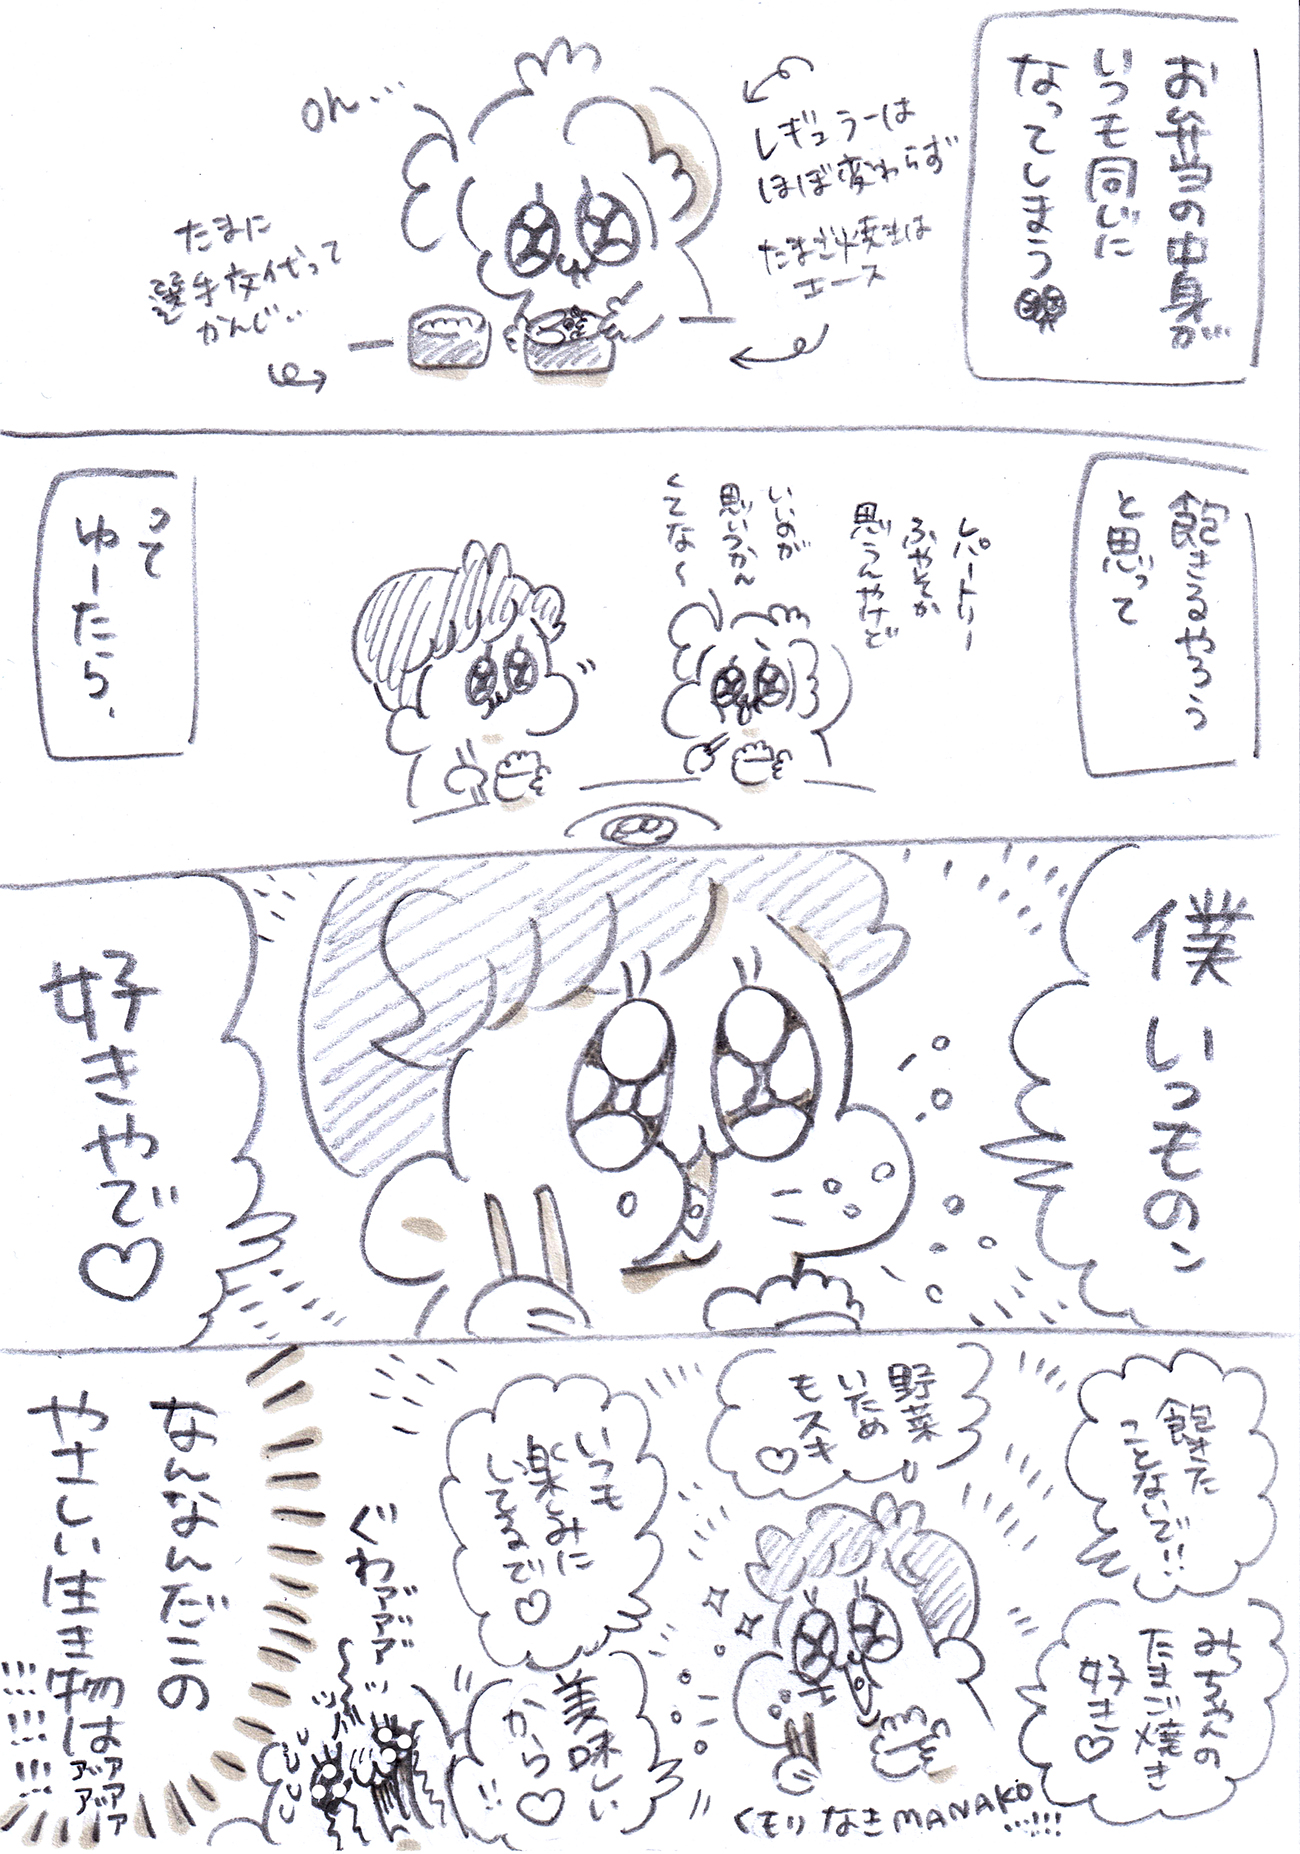 お弁当の中身が
いつも同じに
なってしまう
レギュラーは
ほぼ変わらず
たまご焼きは
エース
oh...
たまに
選手交代って
かんじ...
飽きるやろう
と思って
レパートリー
ふやそか
思うんやけど
いいのが
思いつかん
くてな〜
って
ゆーたら、
僕いつものン
好きやで♡
飽きた
ことないで!!
みちゃんの
たまご焼き
好き♡
野菜
いため
もスキ
♡
いつも
楽しみに
してるで♡
美味しい
から♡
!!
くもりなきMANAKO
...!!!
ぐわァァァ
なんなんだこの
やさしい生き物はァァァァァァ
!!!!!!!!!